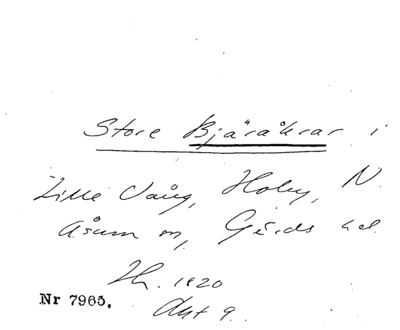 Store Bjäråkrar i
Lille Vång, Holey, N.
Åsum sn, Gärds hd.
Th. 1820
Akt 9.
Nr 7965.